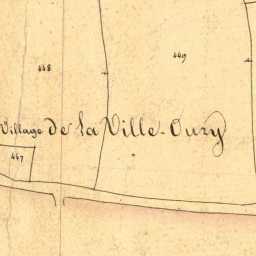 448
449
Village de la Ville-Oury
447